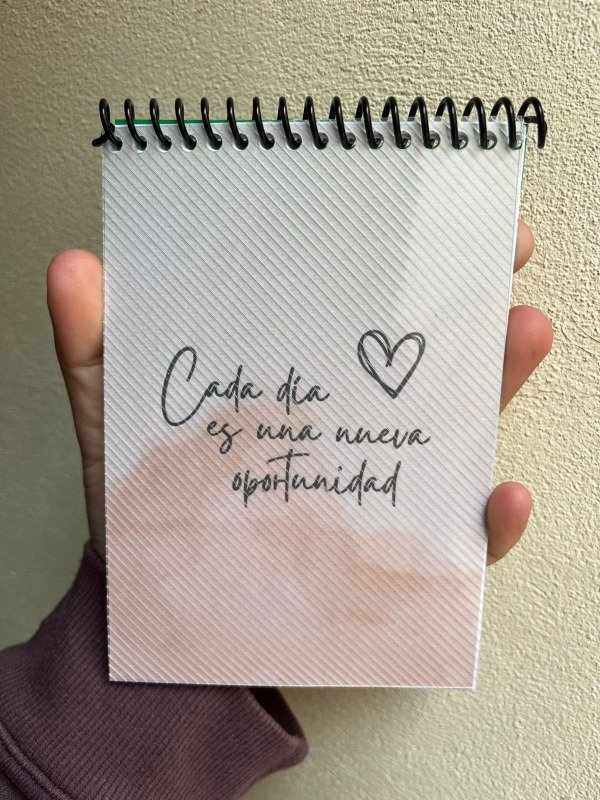 Cada día
es una nueva
oportunidad